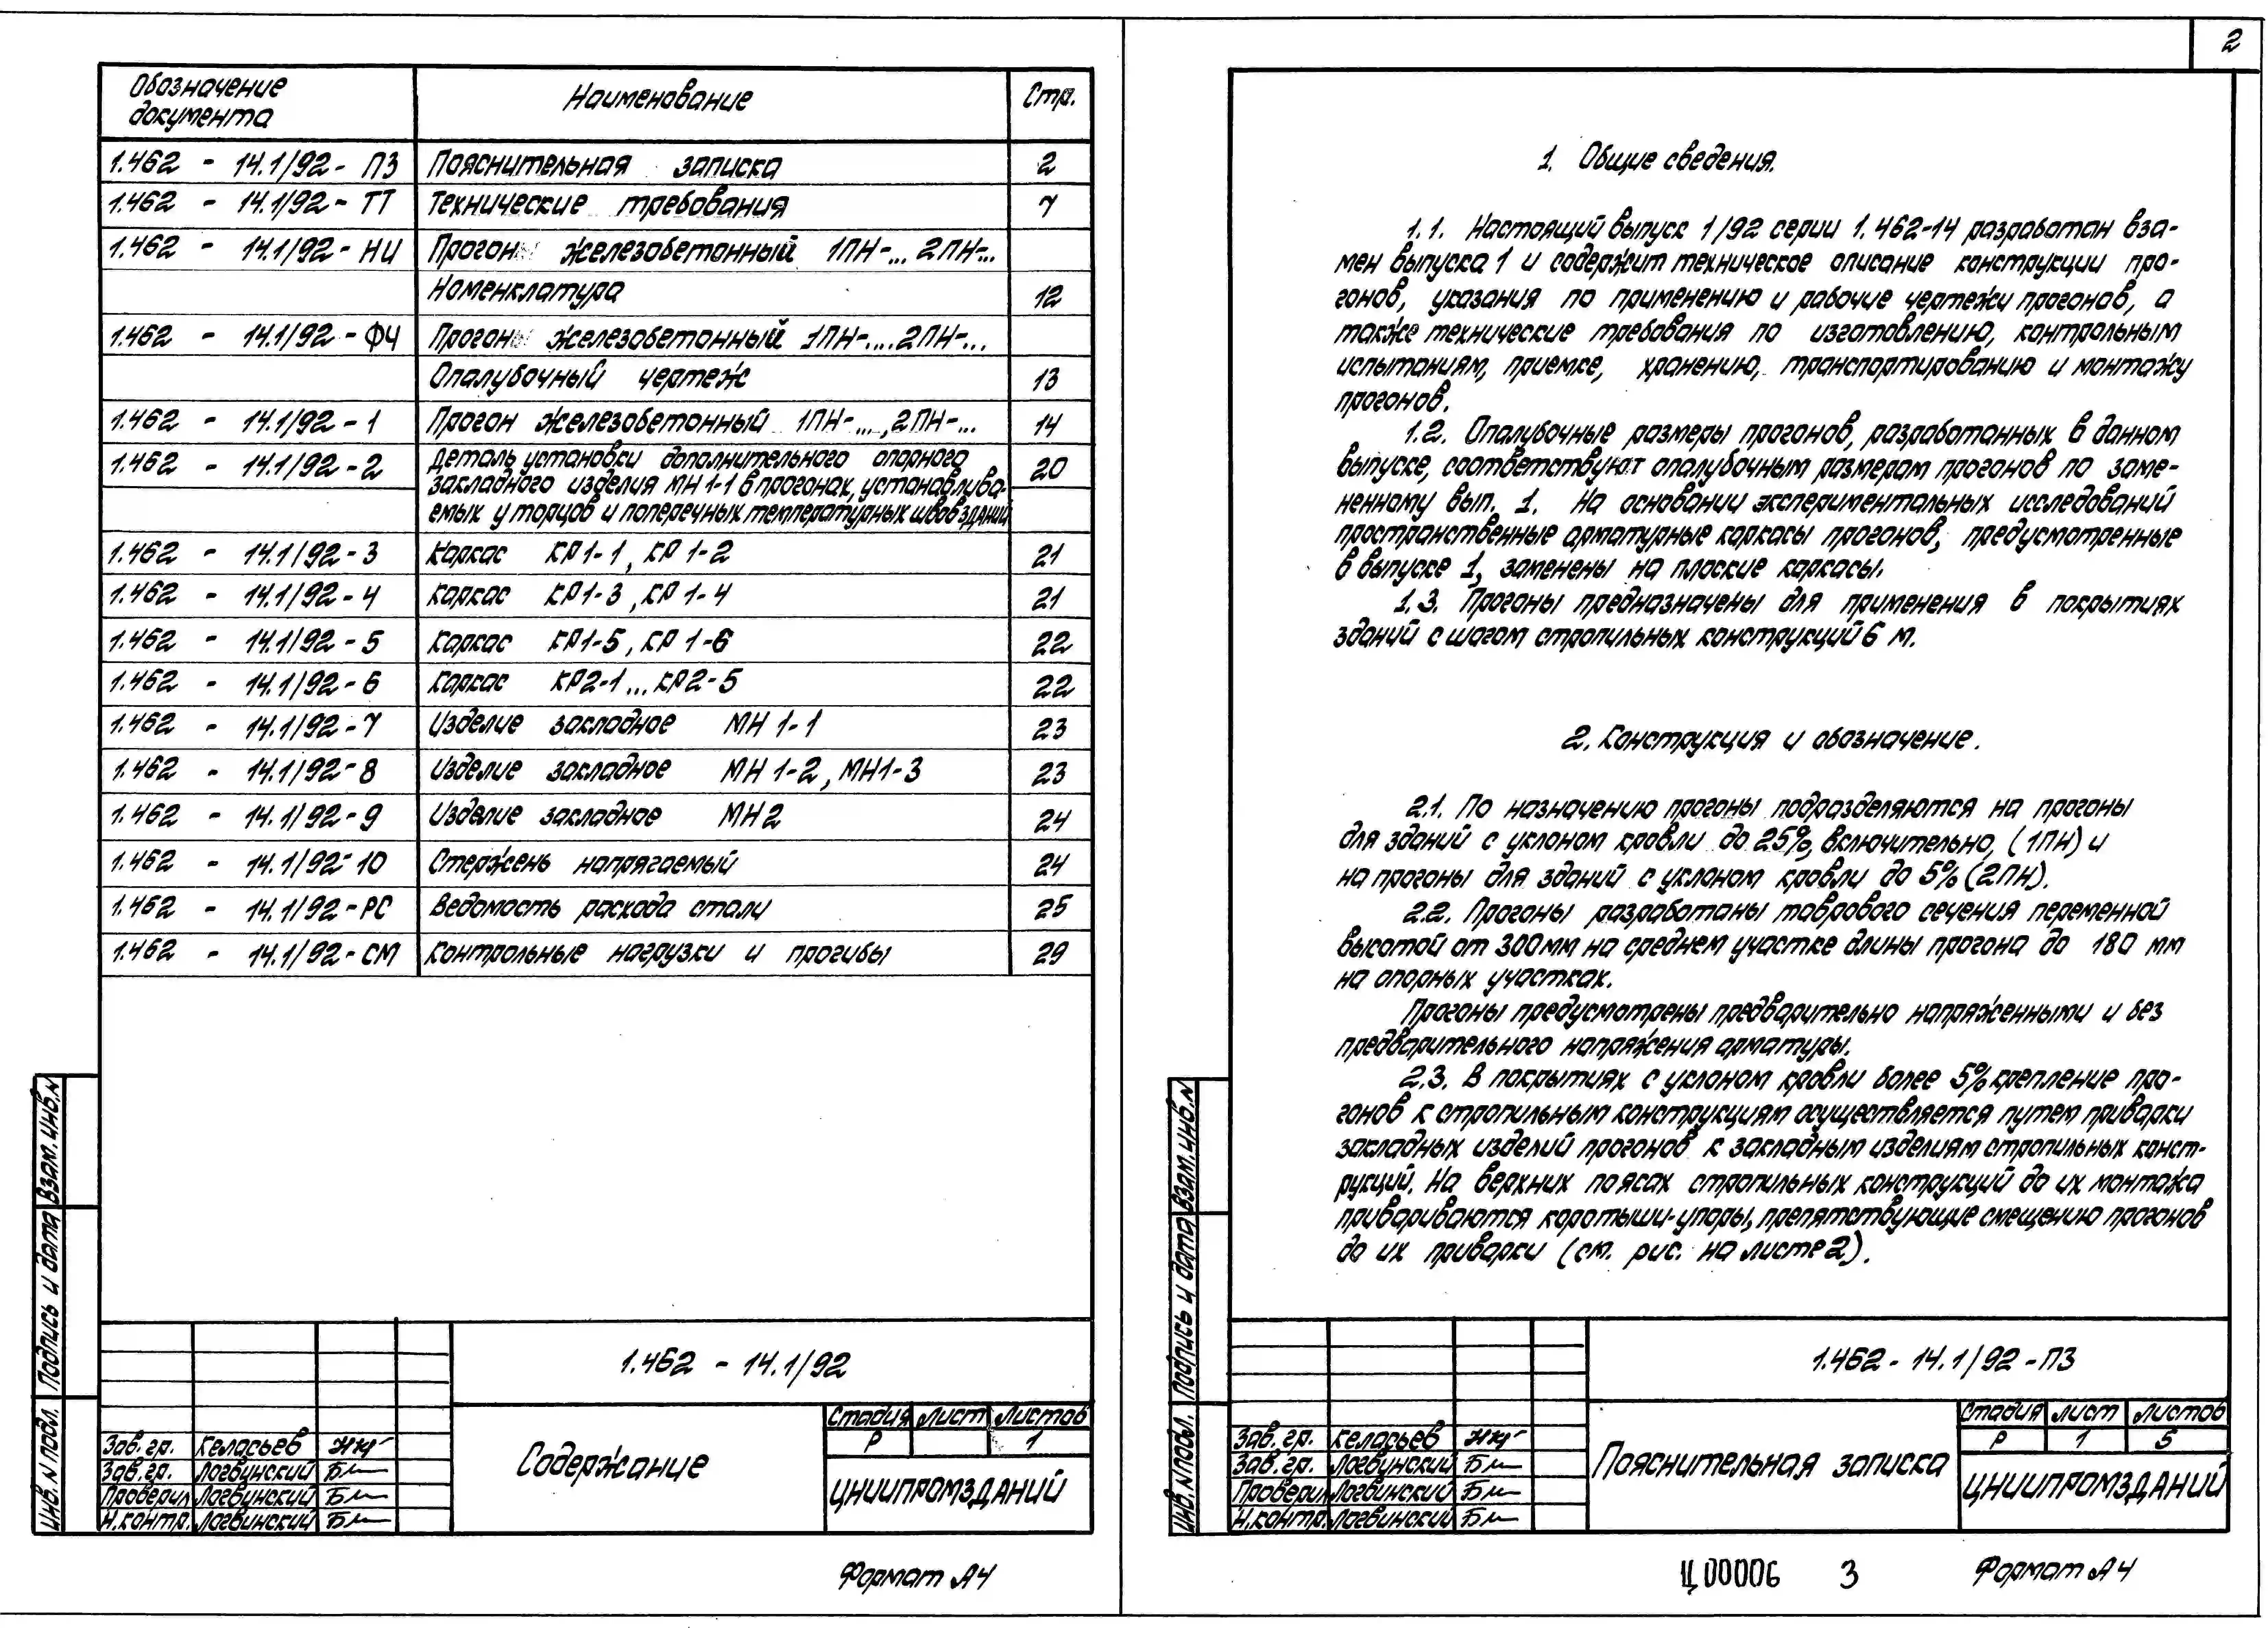 Обозначение документа Наименование Стр.
1.462 - 14.1/92 - ПЗ Пояснительная записка 2
1.462 - 14.1/92 - ТТ Технические требования 7
1.462 - 14.1/92 - НИ Прогон железобетонный 1ПН-... 2ПН-...
Номенклатура 12
1.462 - 14.1/92 - ФЧ Прогон железобетонный 1ПН-....2ПН-...
Опалубочный чертеж 13
1.462 - 14.1/92 - 1 Прогон железобетонный 1ПН-...,2ПН-... 14
1.462 - 14.1/92 - 2 Деталь установки дополнительного опорного 20
закладного изделия МН 1-1 в прогонах, устанавлива-
емых у торцов и поперечных температурных швов зданий
1.462 - 14.1/92 - 3 Каркас КР1-1, КР 1-2 21
1.462 - 14.1/92 - 4 Каркас КР1-3, КР 1-4 21
1.462 - 14.1/92 - 5 Каркас КР1-5, КР 1-6 22
1.462 - 14.1/92 - 6 Каркас КР2-1...КР2-5 22
1.462 - 14.1/92 - 7 Изделие закладное МН 1-1 23
1.462 - 14.1/92 - 8 Изделие закладное МН 1-2, МН1-3 23
1.462 - 14.1/92 - 9 Изделие закладное МН2 24
1.462 - 14.1/92 - 10 Стержень напрягаемый 24
1.462 - 14.1/92 - РС Ведомость расхода стали 25
1.462 - 14.1/92 - СМ Контрольные нагрузки и прогибы 29
Взам. инв. N
Подпись и дата
Инв. N подл.
1.462 - 14.1/92
Стадия Лист Листов
Р 1
Содержание
ЦНИИПРОМЗДАНИЙ
Зав. гр. Келасьев
Зав. гр. Логвинский
Проверил Логвинский
Н. контр. Логвинский
Формат А4
2
1. Общие сведения.
1.1. Настоящий выпуск 1/92 серии 1.462-14 разработан вза-
мен выпуска 1 и содержит техническое описание конструкции про-
гонов, указания по применению и рабочие чертежи прогонов, а
также технические требования по изготовлению, контрольным
испытаниям, приемке, хранению, транспортированию и монтажу
прогонов.
1.2. Опалубочные размеры прогонов, разработанных в данном
выпуске, соответствуют опалубочным размерам прогонов по заме-
ненному вып. 1. На основании экспериментальных исследований
пространственные арматурные каркасы прогонов, предусмотренные
в выпуске 1, заменены на плоские каркасы.
1.3. Прогоны предназначены для применения в покрытиях
зданий с шагом стропильных конструкций 6 м.
2. Конструкция и обозначение.
2.1. По назначению прогоны подразделяются на прогоны
для зданий с уклоном кровли до 25%, включительно, (1ПН) и
на прогоны для зданий с уклоном кровли до 5% (2ПН).
2.2. Прогоны разработаны таврового сечения переменной
высотой от 300 мм на среднем участке длины прогона до 180 мм
на опорных участках.
Прогоны предусмотрены предварительно напряженными и без
предварительного напряжения арматуры.
2.3. В покрытиях с уклоном кровли более 5% крепление про-
гонов к стропильным конструкциям осуществляется путем приварки
закладных изделий прогонов к закладным изделиям стропильных конст-
рукций. На верхних поясах стропильных конструкций до их монтажа
привариваются коротыши-упоры, препятствующие смещению прогонов
до их приварки (см. рис. на листе 2).
Взам. инв. N
Подпись и дата
Инв. N подл.
1.462 - 14.1/92 - ПЗ
Стадия Лист Листов
Р 1 5
Пояснительная записка
ЦНИИПРОМЗДАНИЙ
Зав. гр. Келасьев
Зав. гр. Логвинский
Проверил Логвинский
Н. контр. Логвинский
Ц00006 3 Формат А4